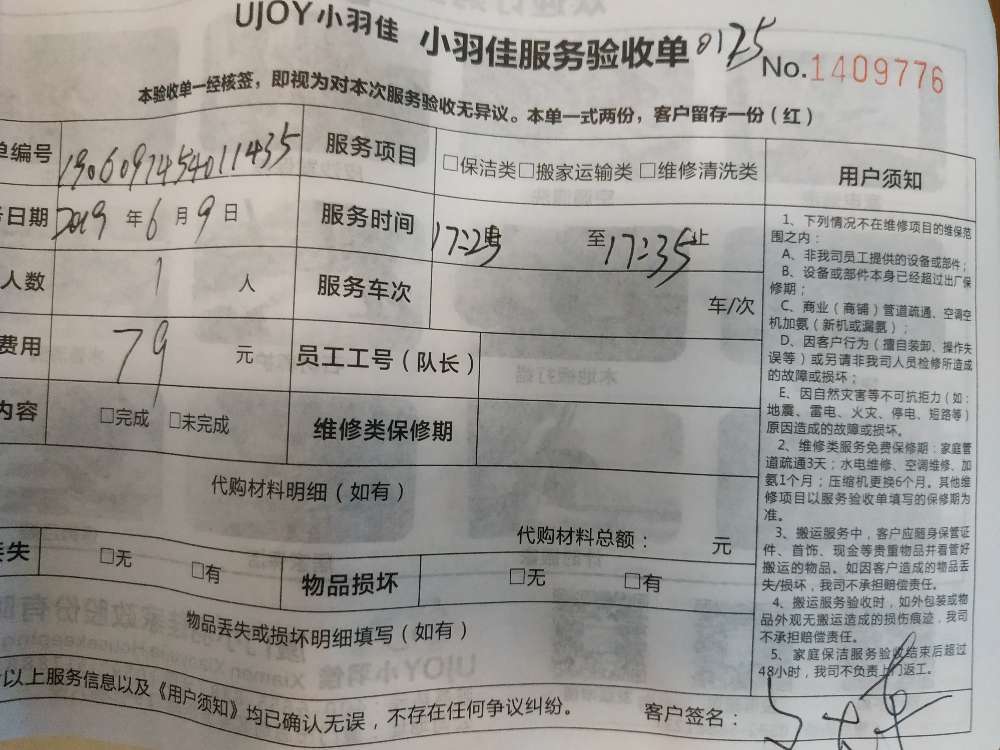 UJOY小羽佳 小羽佳服务验收单 0125
No.1409776
本验收单一经核签，即视为对本次服务验收无异议。本单一式两份，客户留存一份（红）
单编号 1906097454011435 服务项目 □保洁类□搬家运输类 □维修清洗类
日期 2019 年 6 月 9 日 服务时间 17:25 至 17:35 止
人数 1 人 服务车次 车/次
费用 79 元 员工工号（队长）
内容 □完成 □未完成 维修类保修期
代购材料明细（如有）
代购材料总额： 元
丢失 □无 □有 物品损坏 □无 □有
物品丢失或损坏明细填写（如有）
以上服务信息以及《用户须知》均已确认无误，不存在任何争议纠纷。
客户签名：
用户须知
1、下列情况不在维修项目的维保范
围之内：
A、非我司员工提供的设备或部件；
B、设备或部件本身已经超过出厂保
修期；
C、商业（商铺）管道疏通、空调空
机加氨（新机或漏氨）；
D、因客户行为（擅自装卸、操作失
误等）或另请非我司人员检修所造成
的故障或损坏；
E、因自然灾害等不可抗拒力（如：
地震、雷电、火灾、停电、短路等）
原因造成的故障或损坏。
2、维修类服务免费保修期：家庭管
道疏通3天；水电维修、空调维修、加
氨1个月；压缩机更换6个月。其他维
修项目以服务验收单填写的保修期为
准。
3、搬运服务中，客户应随身保管证
件、首饰、现金等贵重物品并看管好
搬运的物品。如因客户造成的物品丢
失/损坏，我司不承担赔偿责任。
4、搬运服务验收时，如外包装或物
品外观无搬运造成的损伤痕迹，我司
不承担赔偿责任。
5、家庭保洁服务验收结束后超过
48小时，我司不负责上门返工。